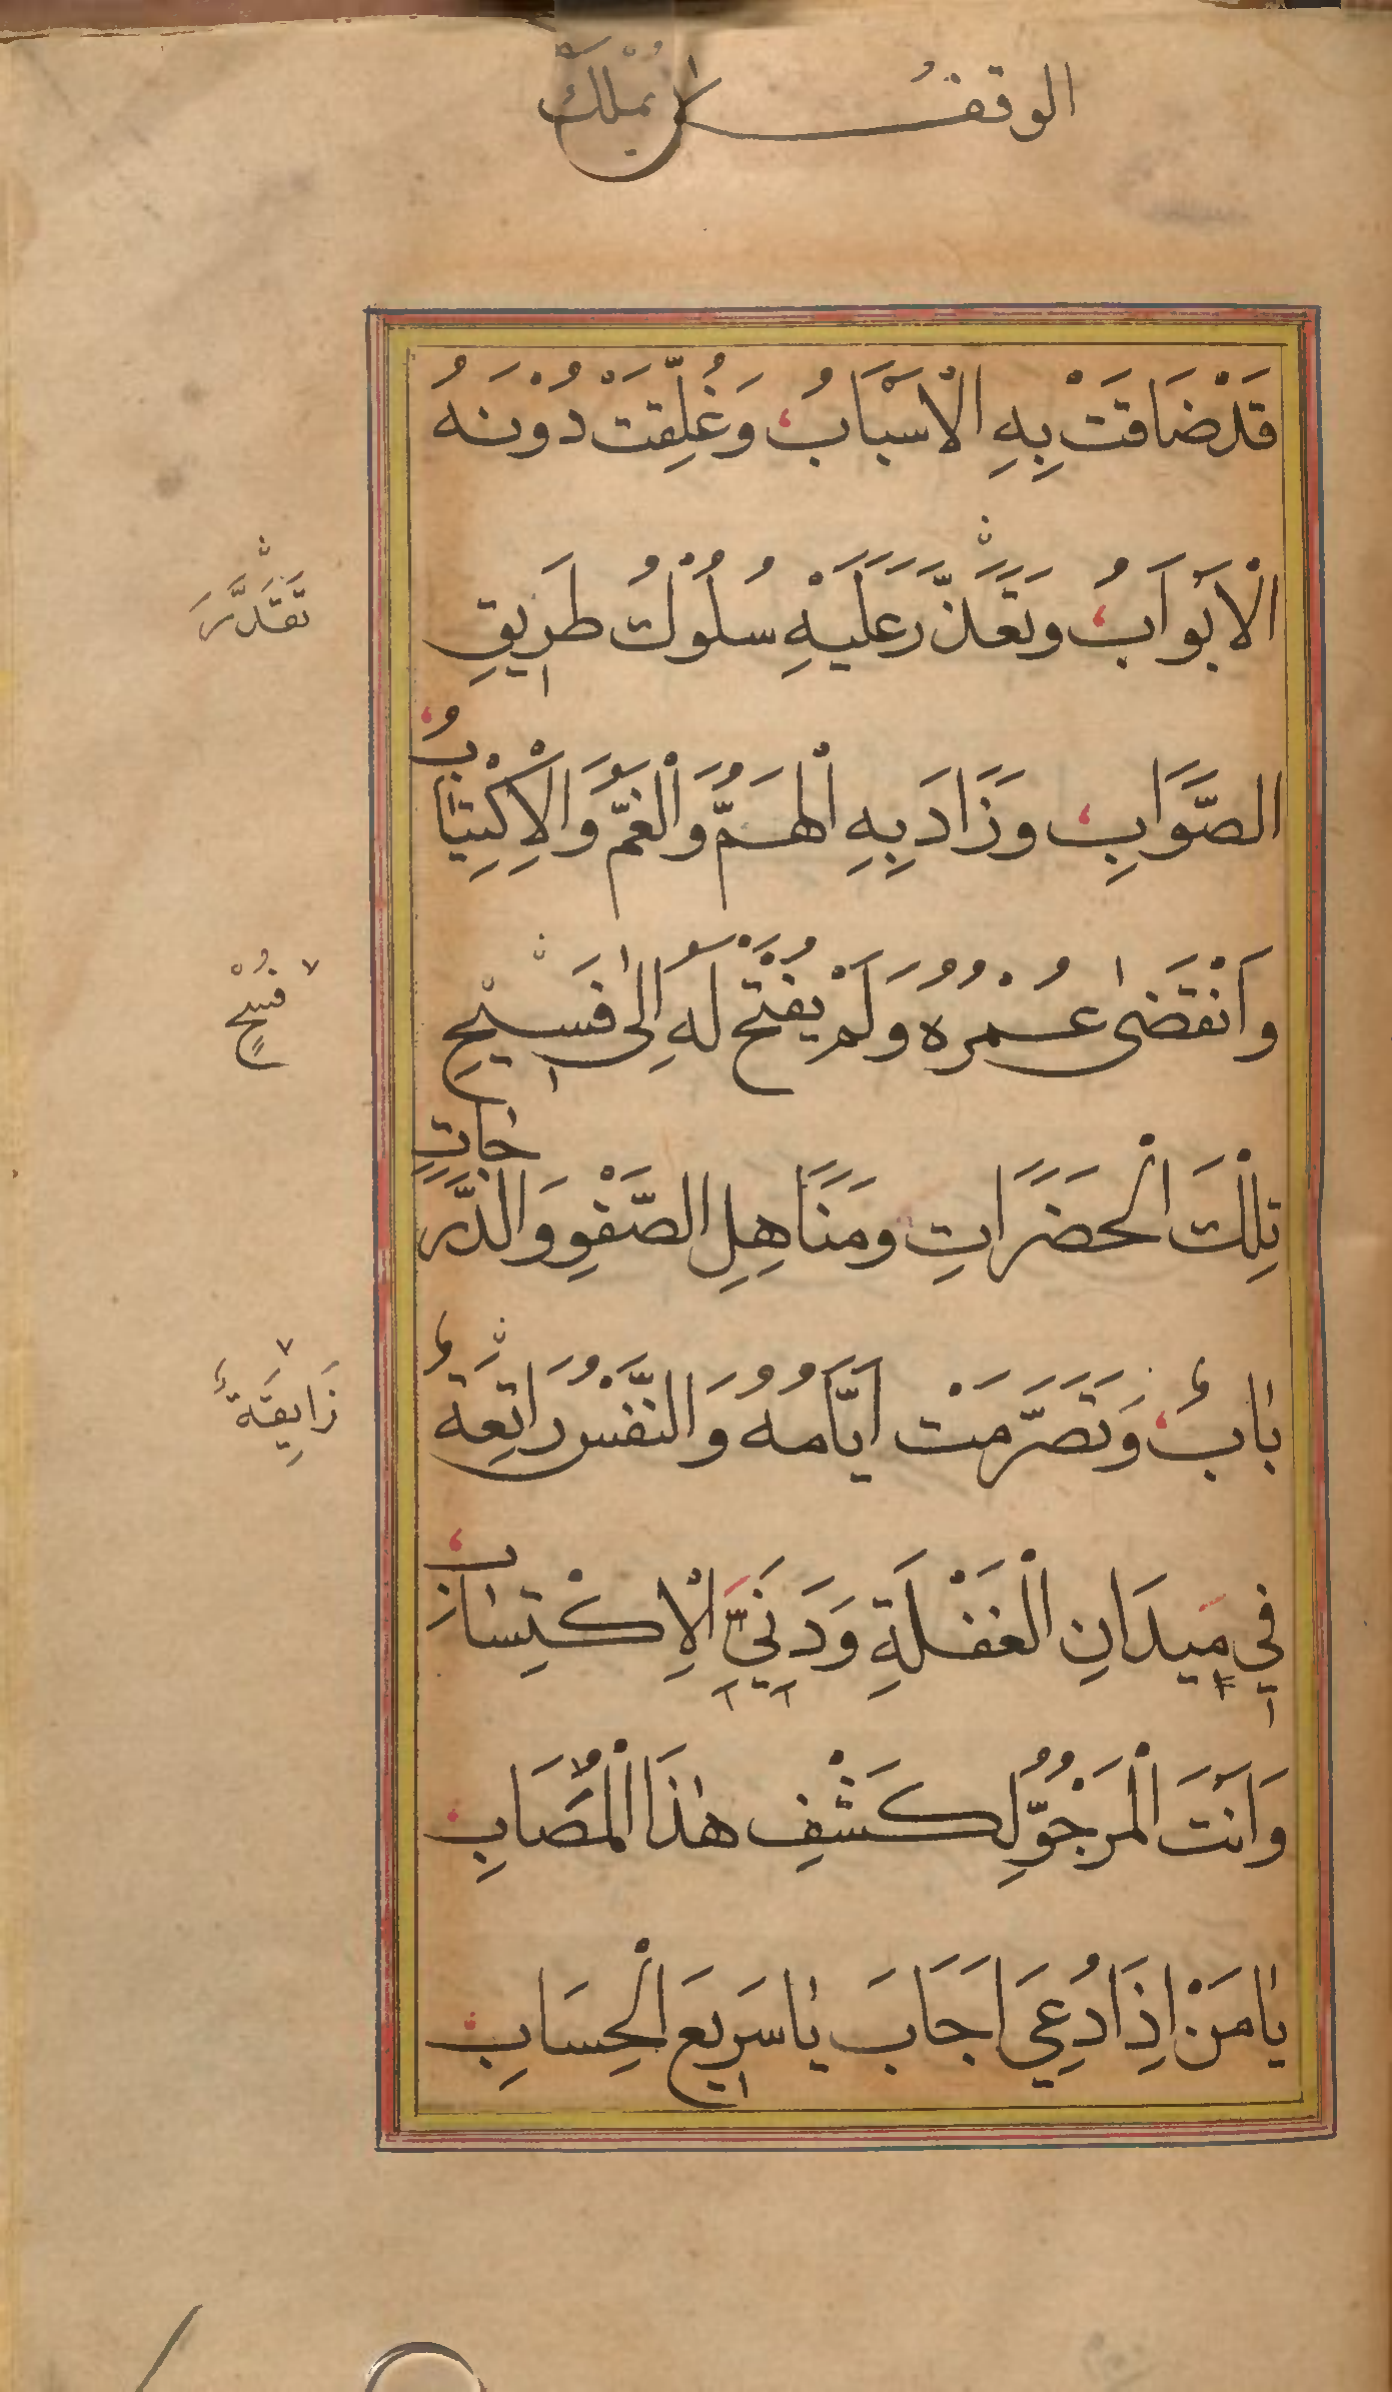 الوقف لا يُمْلَكُ
قَدْ ضَاقَتْ بِهِ الْاَسْبَابُ وَغُلِّقَتْ دُوْنَهُ
الْاَبْوَابُ وَتَعَذَّرَ عَلَيْهِ سُلُوْكُ طَرِيقِ
تَقَدَّرَ
الصَّوَابِ وَزَادَ بِهِ الْهَمُّ وَالْغَمُّ وَالْاِكْتِيَابُ
وَانْقَضٰى عُمْرُهُ وَلَمْ يُفْتَحْ لَهُ اِلٰى فَسِيْحِ
فُسْحٍ
تِلْكَ الْحَضَرَاتِ وَمَنَاهِلِ الصَّفْوِ وَالدَّرَجَاتِ
بَابٌ وَتَصَرَّمَتْ اَيَّامُهُ وَالنَّفْسُ رَاتِعَةٌ
زَايِقَةٌ
فِي مِيدَانِ الْغَفْلَةِ وَدَنِيِّ الْاِكْتِسَابِ
وَاَنْتَ الْمَرْجُوُّ لِكَشْفِ هٰذَا الْمُصَابِ
يَا مَنْ اِذَا دُعِيَ اَجَابَ يَا سَرِيعَ الْحِسَابِ